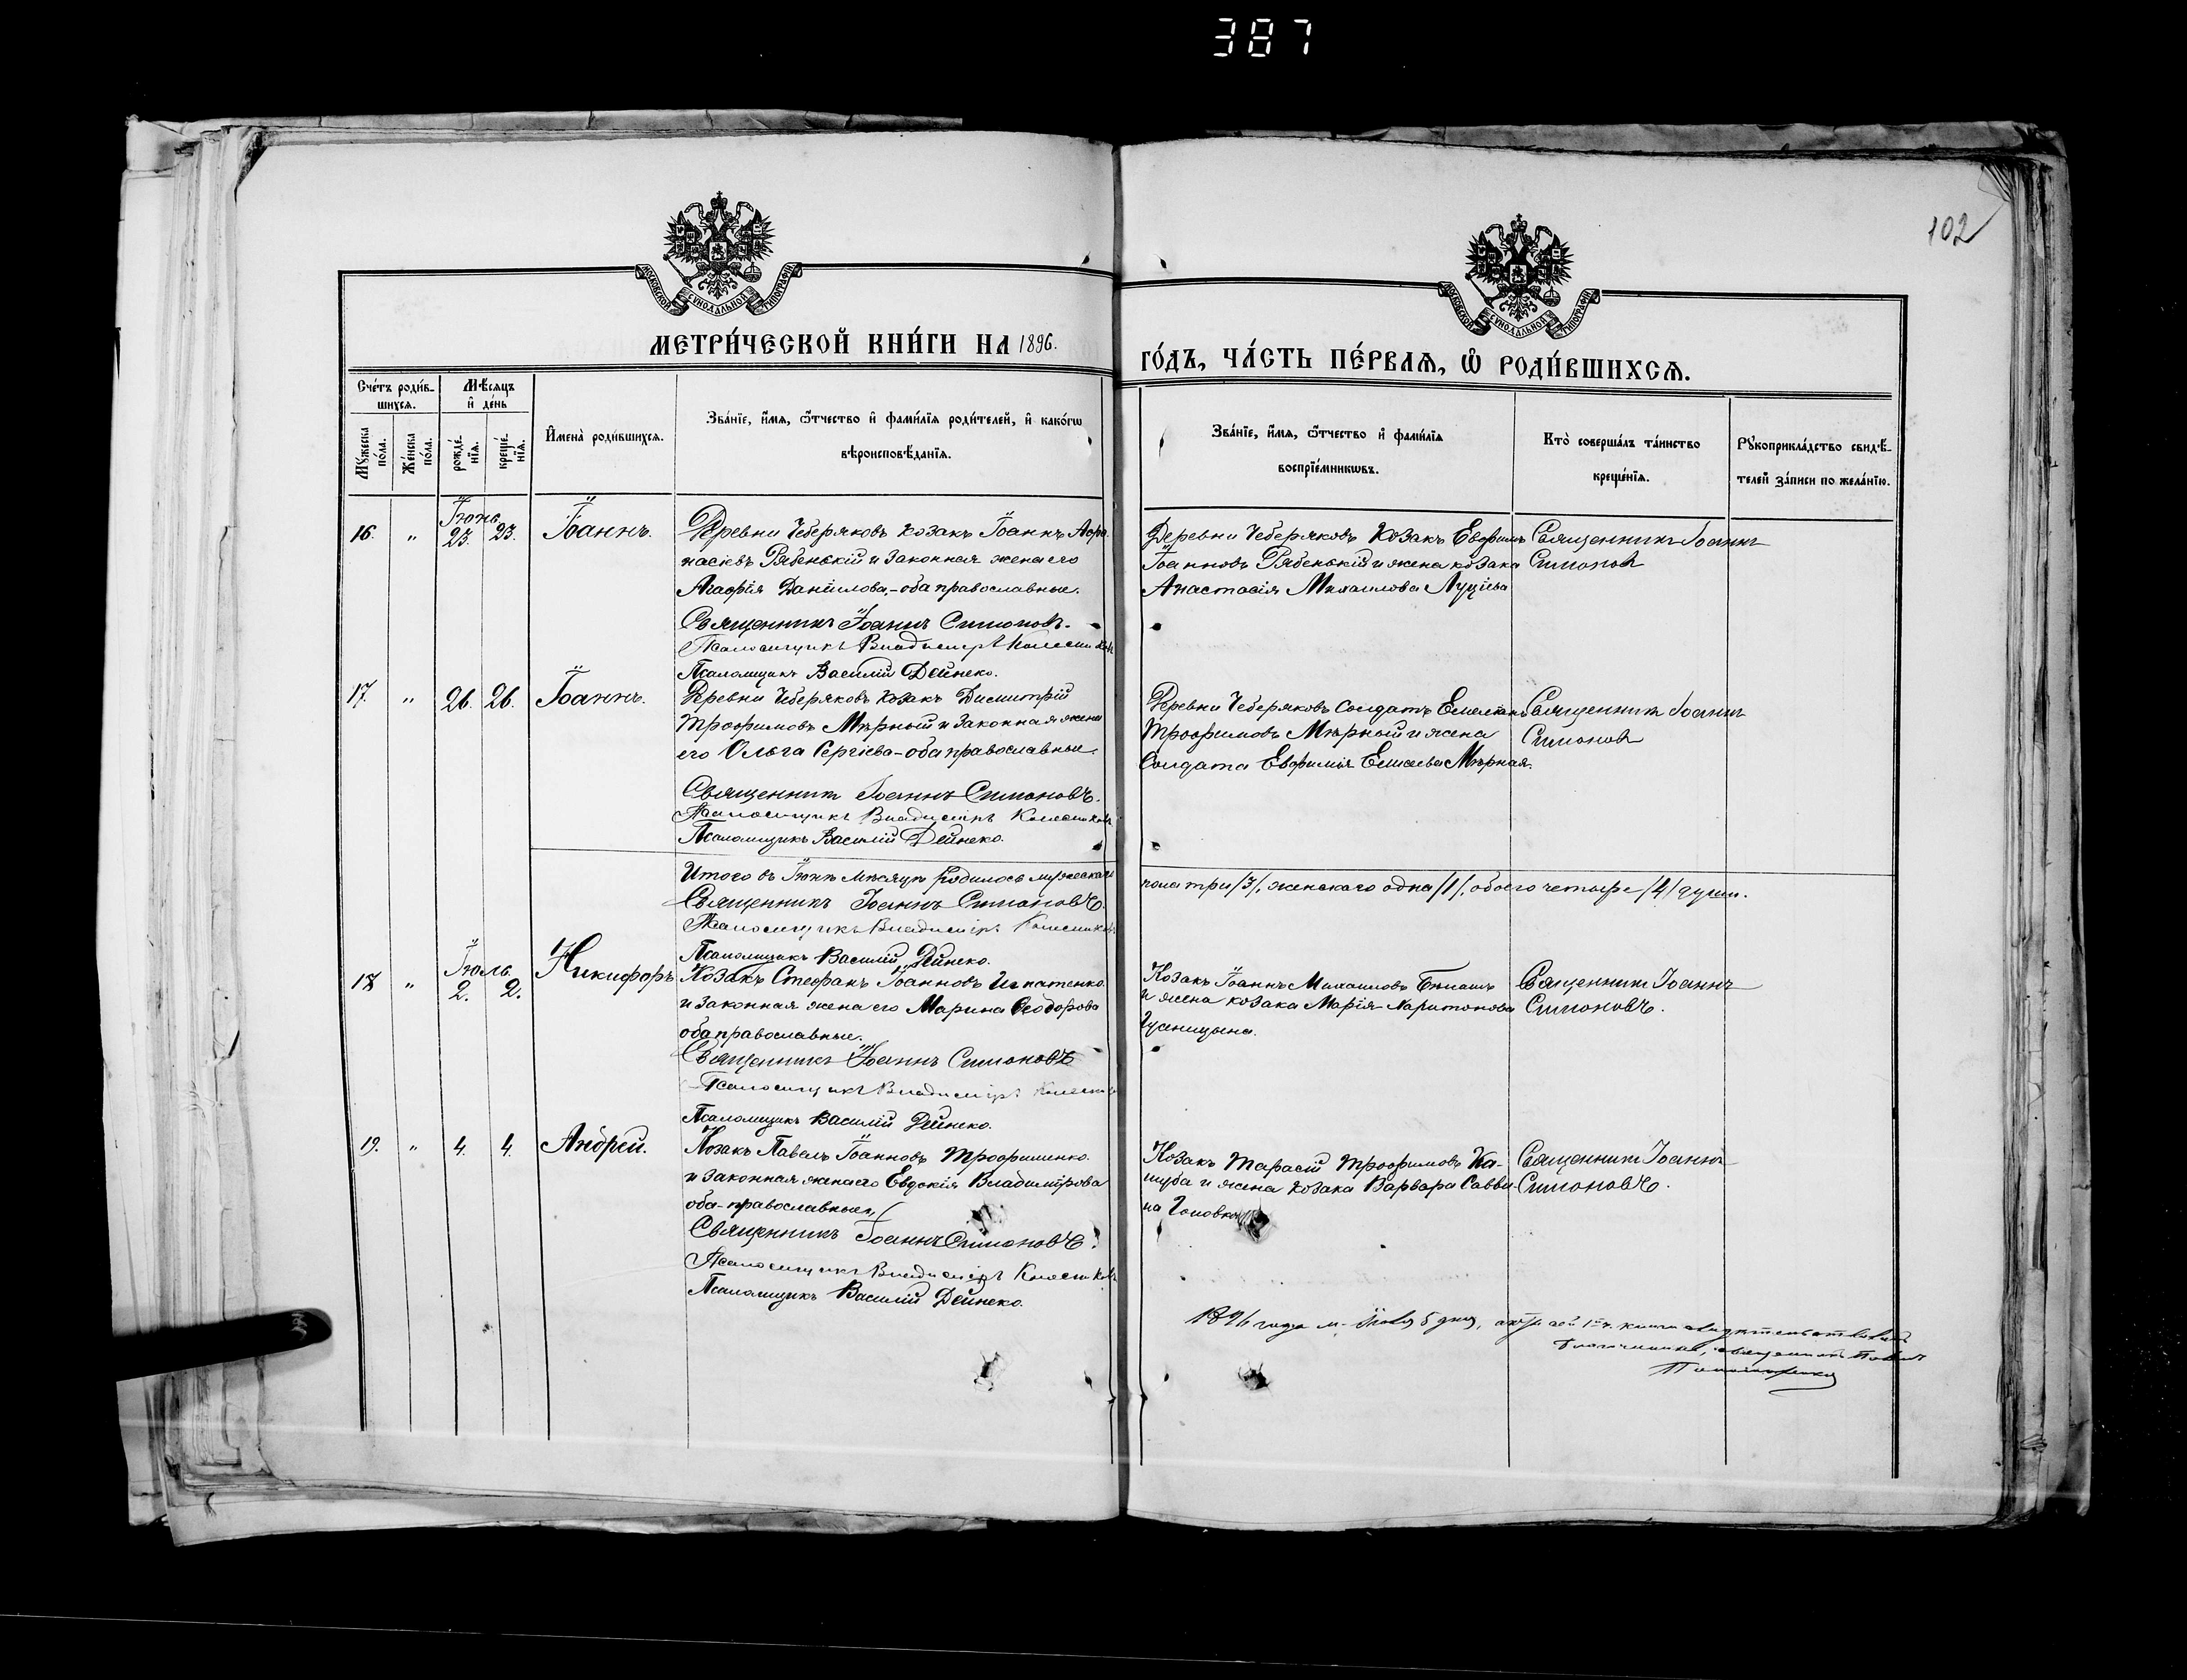 387
102
МОСКОВСКОЙ СѴНОДАЛЬНОЙ ТИПОГРАФІИ
МОСКОВСКОЙ СѴНОДАЛЬНОЙ ТИПОГРАФІИ
МЕТРИ́ЧЕСКОЙ КНИ́ГИ НА 1896.
ГО́ДЪ, ЧА́СТЬ ПЕ́РВАѦ, Ѡ҆ РОДИ́ВШИХСѦ.
Сче́тъ роди́в-
шихсѧ.
Мѣ́сѧцъ
и҆ де́нь
Мꙋ́жеска по́ла.
Же́нска по́ла.
рожде́-
нїѧ.
креще́-
нїѧ.
И҆мена̀ роди́вшихсѧ.
Зва́нїе, и҆́мѧ, ѻ҆́тчество и҆ фами́лїѧ роди́телей, и҆ како́гѡ
вѣроисповѣ́данїѧ.
Зва́нїе, и҆́мѧ, ѻ҆́тчество и҆ фами́лїѧ
воспрїе́мникѡвъ.
Кто̀ соверша́лъ та́инство
креще́нїѧ.
Рꙋкоприкла́дство свидѣ́-
телей за́писи по жела́нїю.
Іюнь
16. " 23. 23. Іоаннъ.
Деревни Чеберяковъ козакъ Іоаннъ Афа-
насіевъ Рябенькій и законная жена его
Агафія Даніилова, - оба православные.
Священникъ Іоаннъ Симоновъ.
Псаломщикъ Владиміръ
Псаломщикъ Василій Дейнеко.
Деревни Чеберяковъ козакъ Евфимъ
Іоанновъ Рябенькій и жена козака
Анастасія Михаилова Луціева
Священникъ Іоаннъ
Симоновъ
17. " 26. 26. Іоаннъ.
Деревни Чеберяковъ козакъ Димитрій
Трофимовъ Мѣрный и законная жена
его Ольга Сергіева - оба православные.
Священникъ Іоаннъ Симоновъ.
Псаломщикъ Владиміръ
Псаломщикъ Василій Дейнеко.
Деревни Чеберяковъ солдатъ Емеліанъ
Трофимовъ Мѣрный и жена
солдата Евфимія Елисеева Мѣрная.
Священникъ Іоаннъ
Симоновъ
Итого въ Іюнѣ мѣсяцѣ родилось мужескаго
пола три /3/, женскаго одна /1/, обоего четыре /4/ души.
Священникъ Іоаннъ Симоновъ.
Псаломщикъ Владиміръ
Псаломщикъ Василій Дейнеко.
Іюль
18 " 2. 2. Никифоръ
Козакъ Стефанъ Іоанновъ Игнатенко
и законная жена его Марина Ѳеодорова
оба православные.
Священникъ Іоаннъ Симоновъ
Псаломщикъ Владиміръ
Псаломщикъ Василій Дейнеко.
Козакъ Іоаннъ Михаиловъ
и жена козака Марія Харитонова
Гусеницына.
Священникъ Іоаннъ
Симоновъ.
19. " 4. 4. Андрей.
Козакъ Павелъ Іоанновъ Трофименко
и законная жена его Евдокія Владимірова
оба-православные.
Священникъ Іоаннъ Симоновъ.
Псаломщикъ Владиміръ
Псаломщикъ Василій Дейнеко.
Козакъ Тарасій Трофимовъ Ка-
шуба и жена козака Варвара Савви-
на
Священникъ Іоаннъ
Симоновъ.
1896 года м- Іюля 5 дня,
священникъ Павелъ